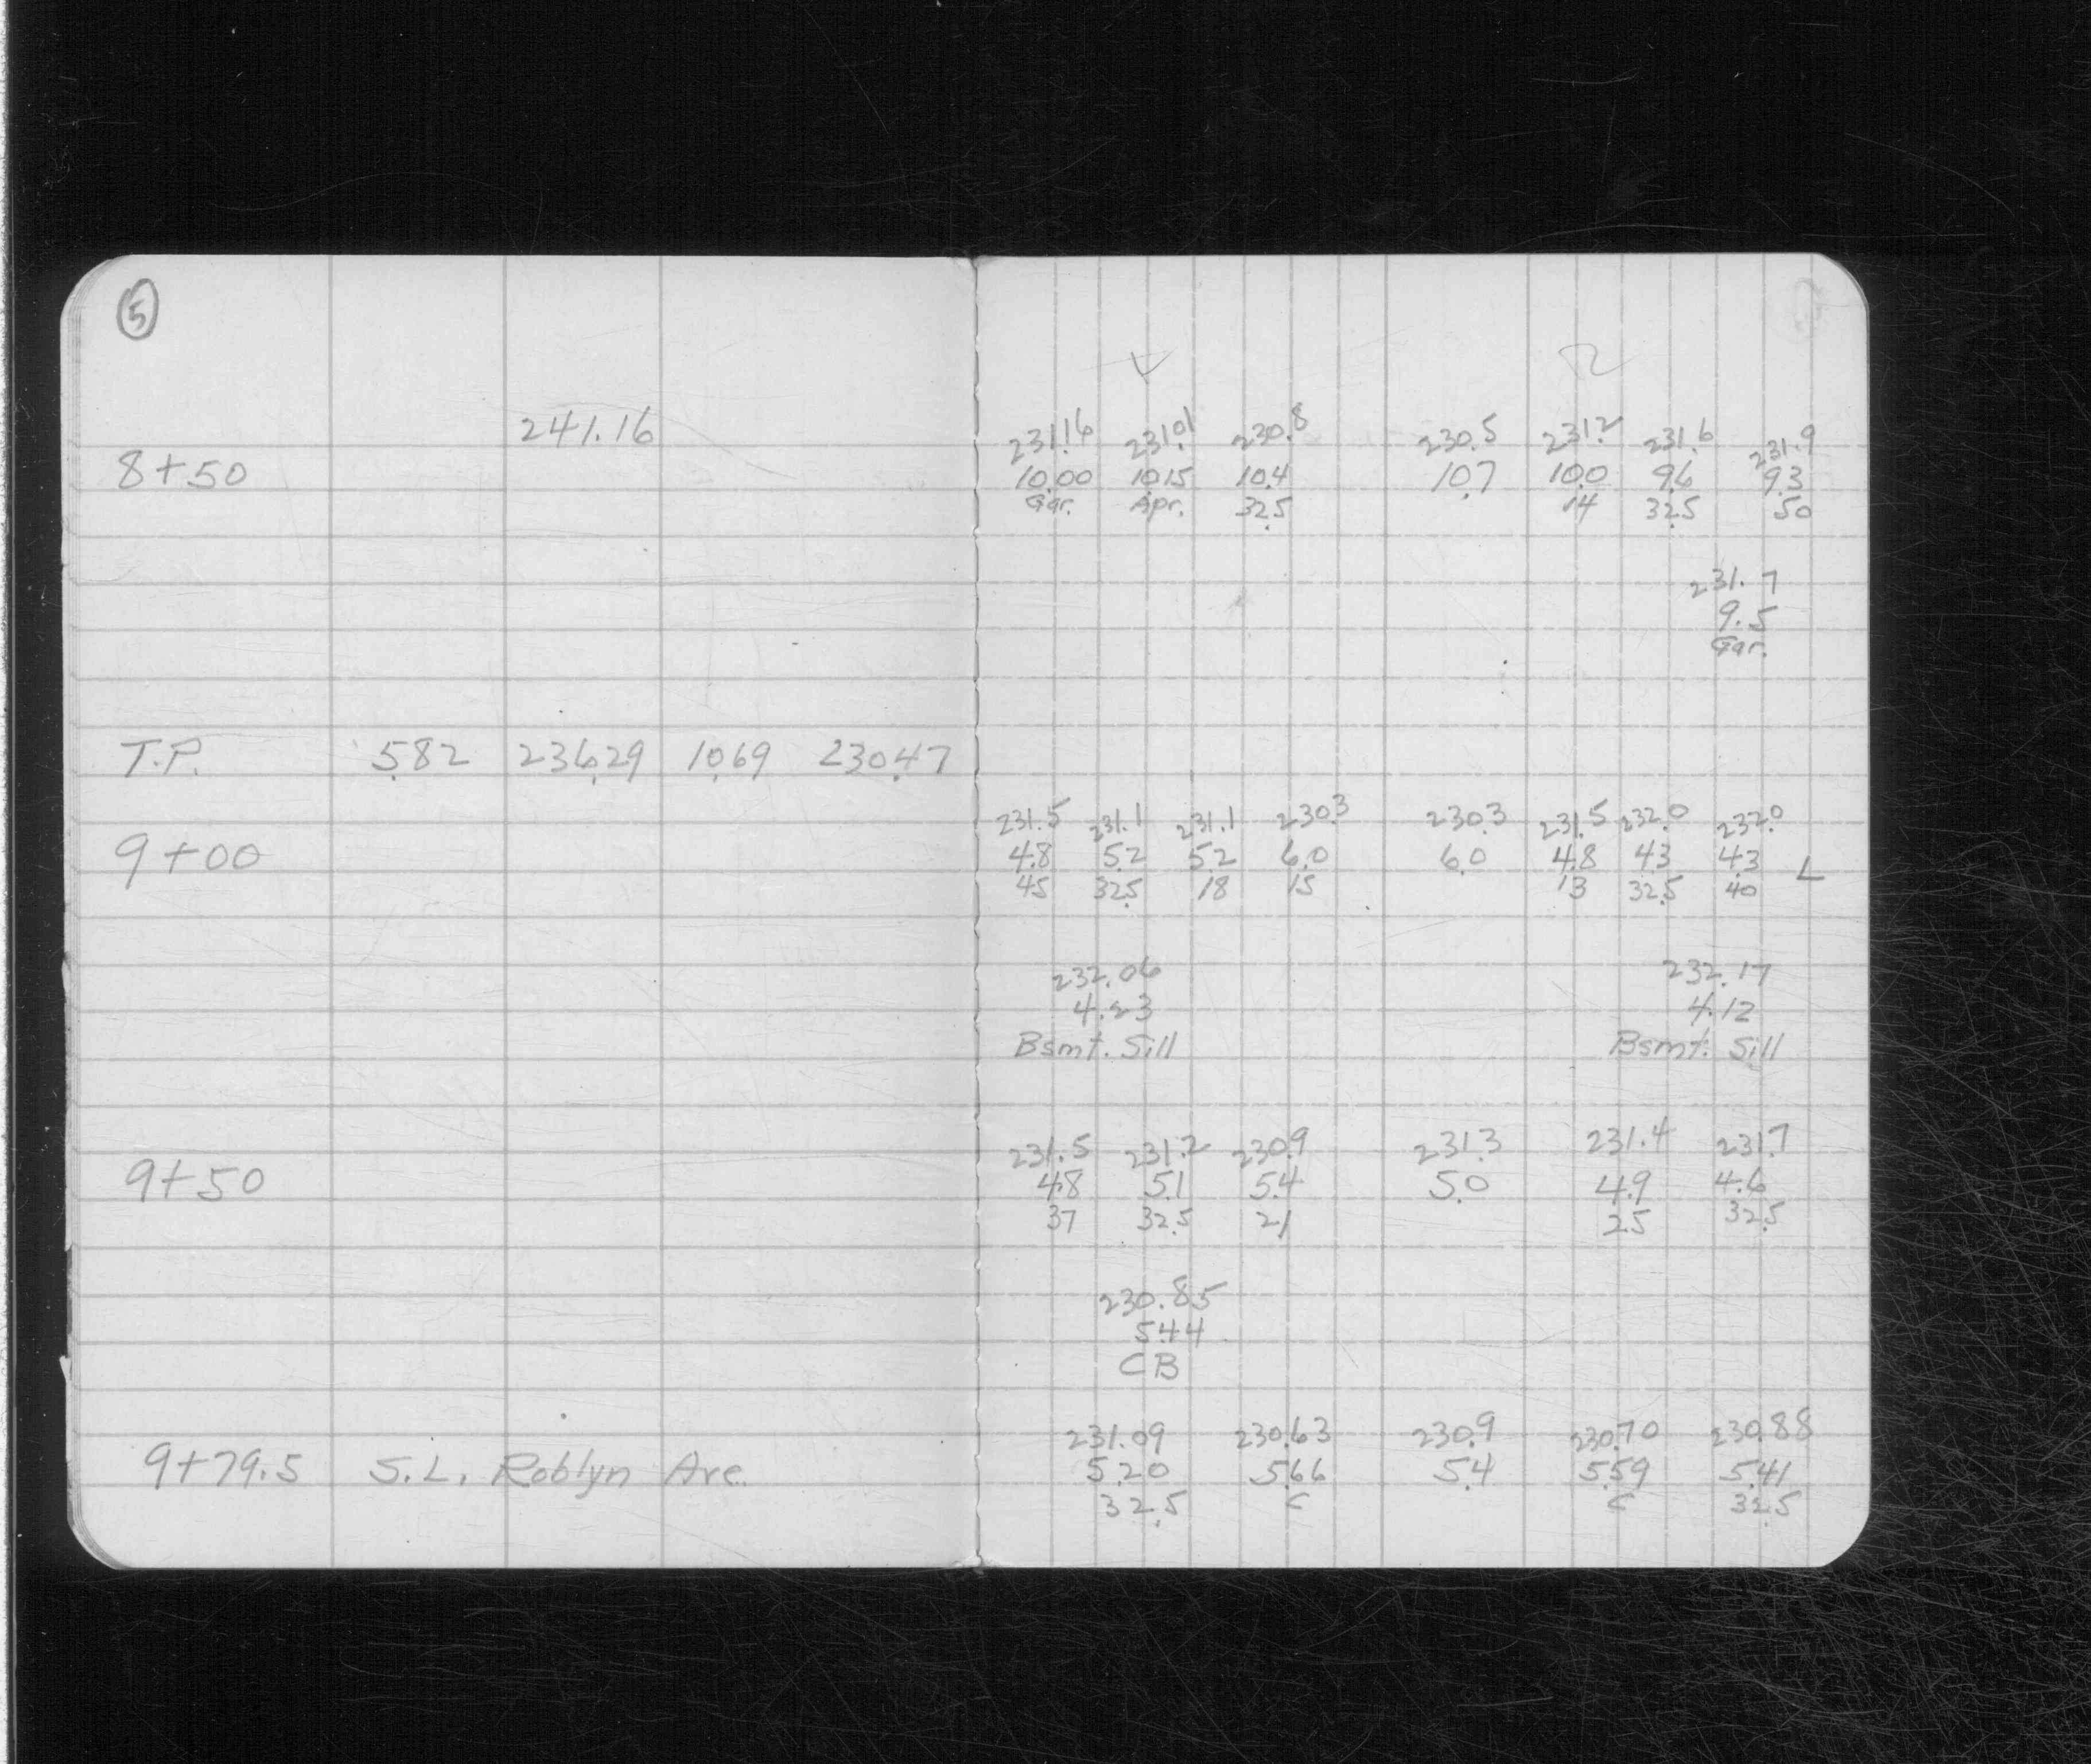 5
241.16
8+50
231.16 231.01 230.8 230.5 231.2 231.6 231.9
10.00 10.15 10.4 10.7 10.0 9.6 9.3
Gar. Apr. 32.5 14 32.5 50
231.7
9.5
Gar.
T.P. 5.82 236.29 10.69 230.47
9+00
231.5 231.1 231.1 230.3 230.3 231.5 232.0 232.0
4.8 5.2 5.2 6.0 6.0 4.8 4.3 4.3
45 32.5 18 15 13 32.5 40 L
232.06 232.17
4.23 4.12
Bsmt. Sill Bsmt. Sill
9+50
231.5 231.2 230.9 231.3 231.4 231.7
4.8 5.1 5.4 5.0 4.9 4.6
37 32.5 21 25 32.5
230.85
5.44
CB
9+79.5 S.L. Roblyn Ave.
231.09 230.63 230.9 230.70 230.88
5.20 5.66 5.4 5.59 5.41
32.5 C C 32.5